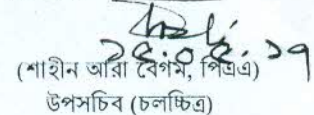 ২৫.০৫.১৭
(শাহীন আরা বেগম, পিএএ)
উপসচিব (চলচ্চিত্র)